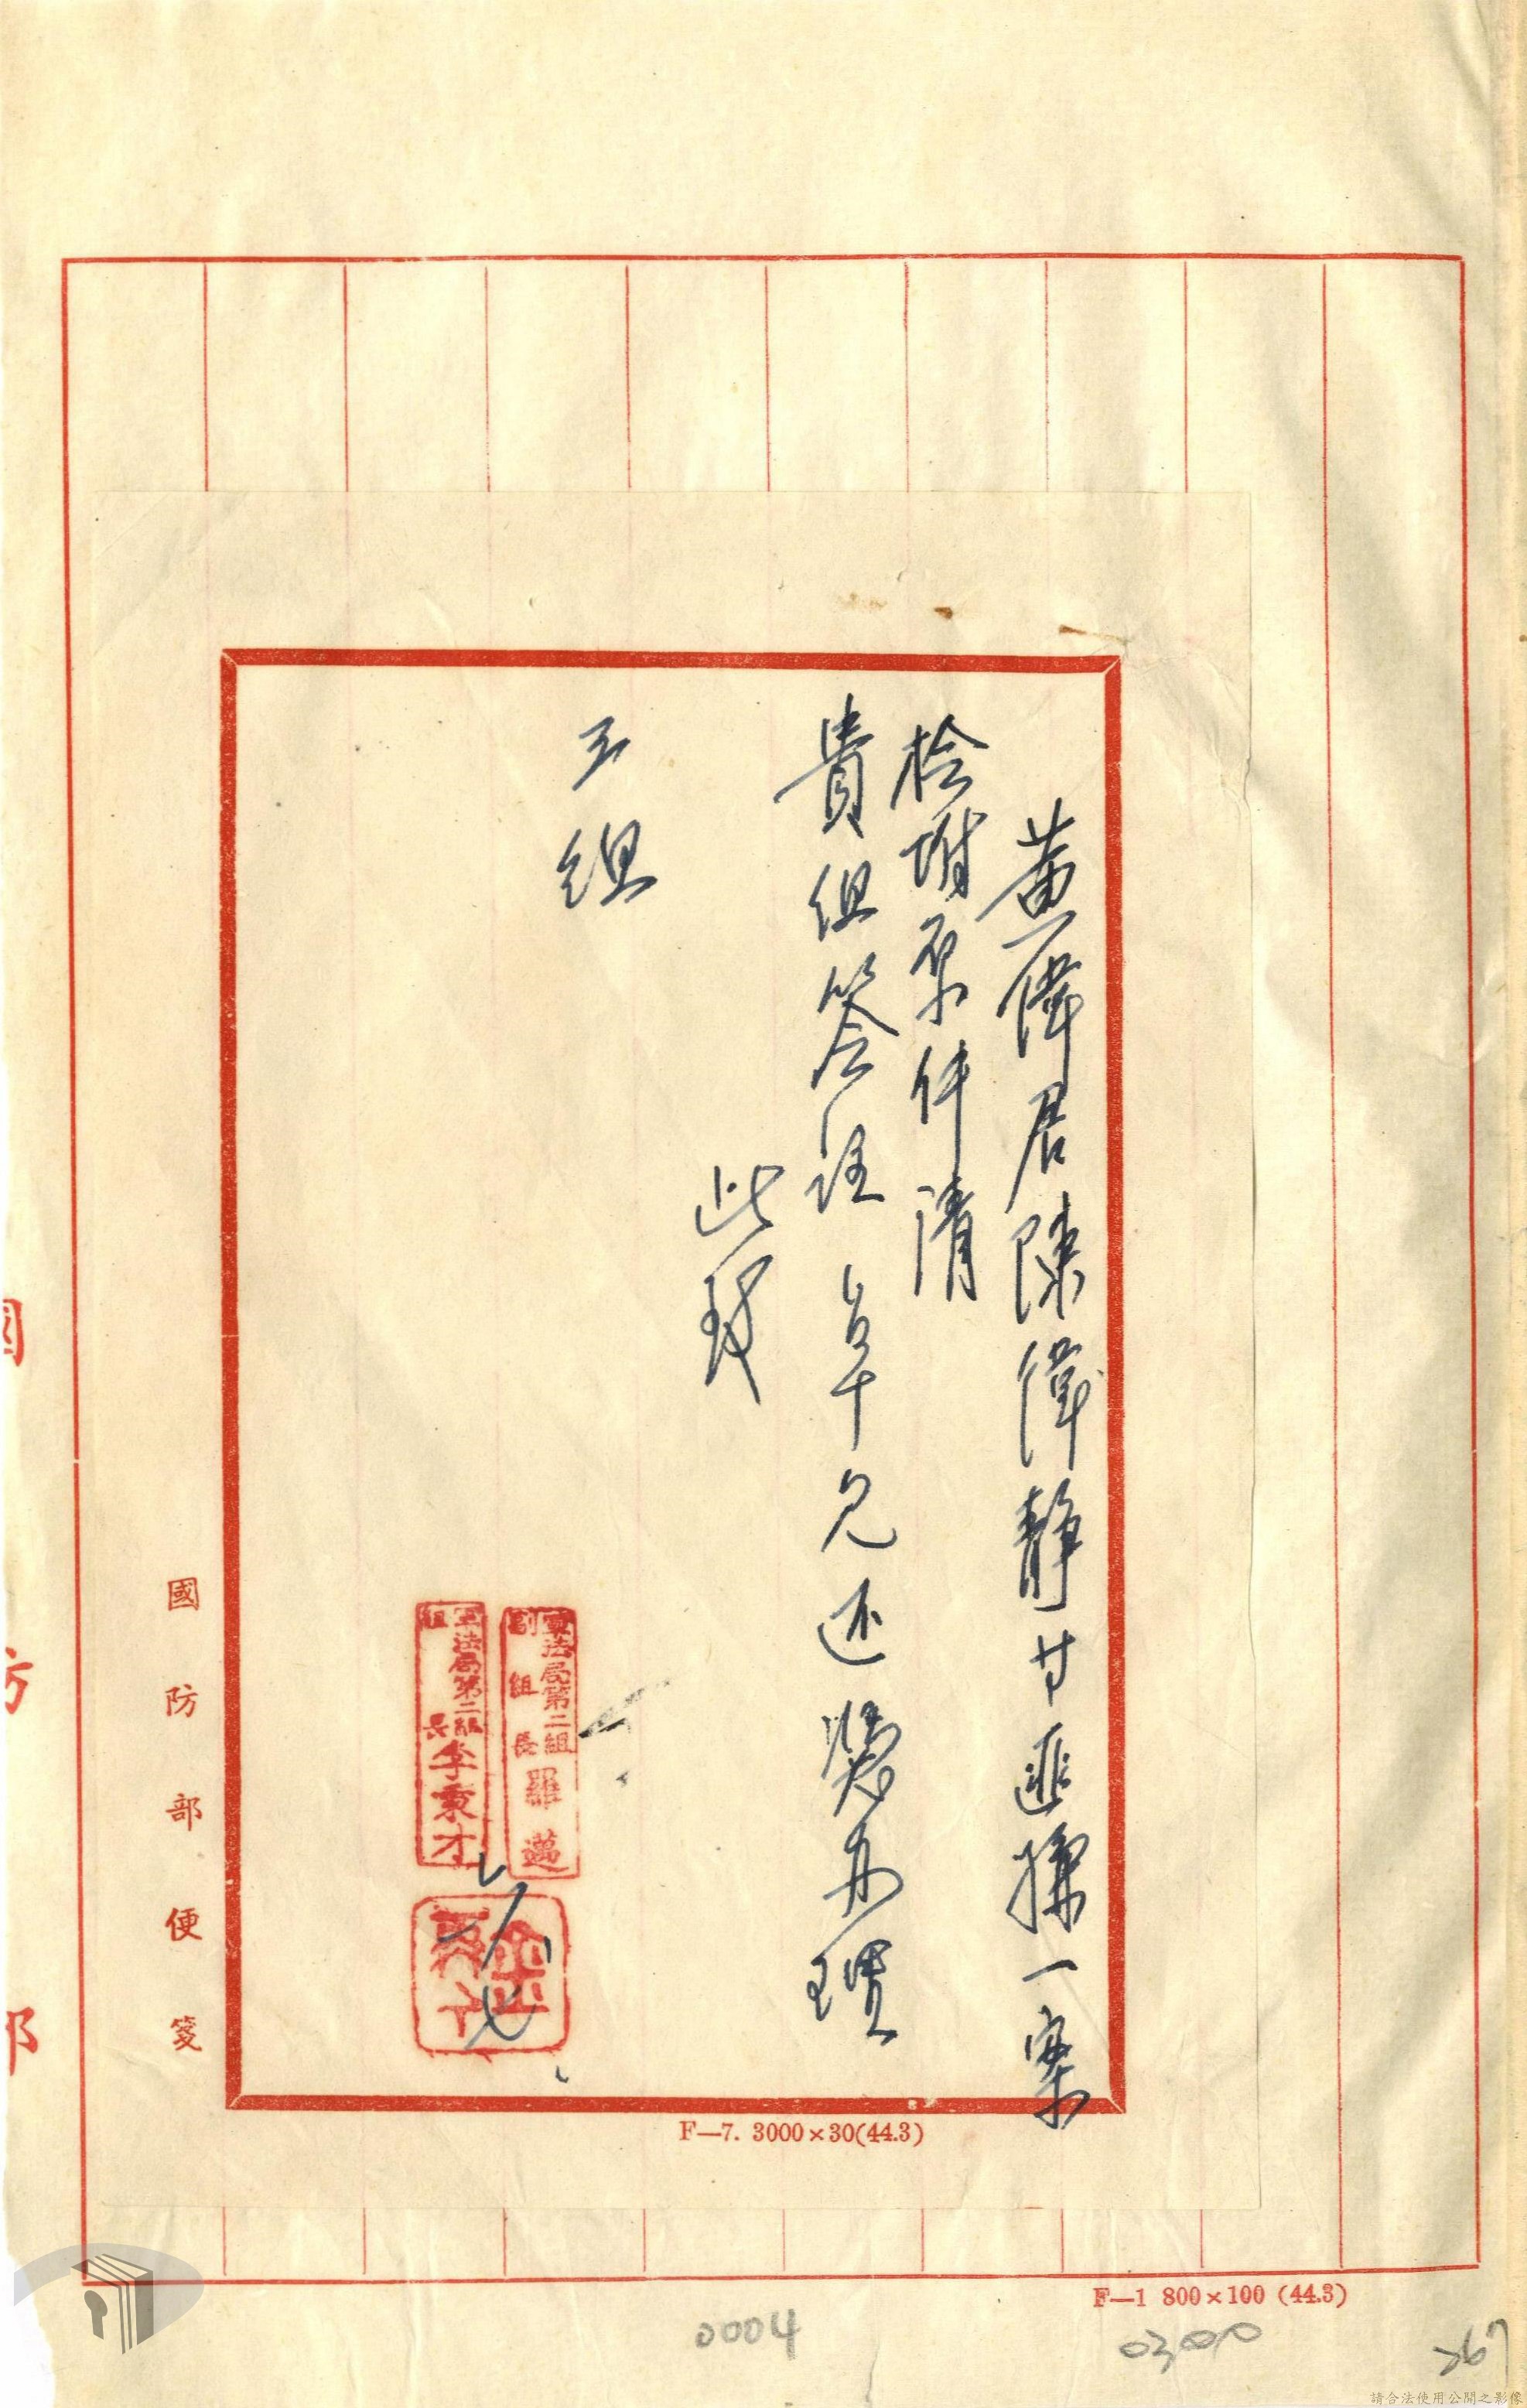 黃偉君陳偉靜廿匪諜一案
檢附原件請
貴組簽註卓見还弟办理
此致
三組
軍法局第二組
副組長羅邁
軍法局第二組
組長李秉才
國防部便箋
F—7. 3000×30(44.3)
國防部
F—1 800×100 (44.3)
0004
0300
267
請合法使用公開之影像